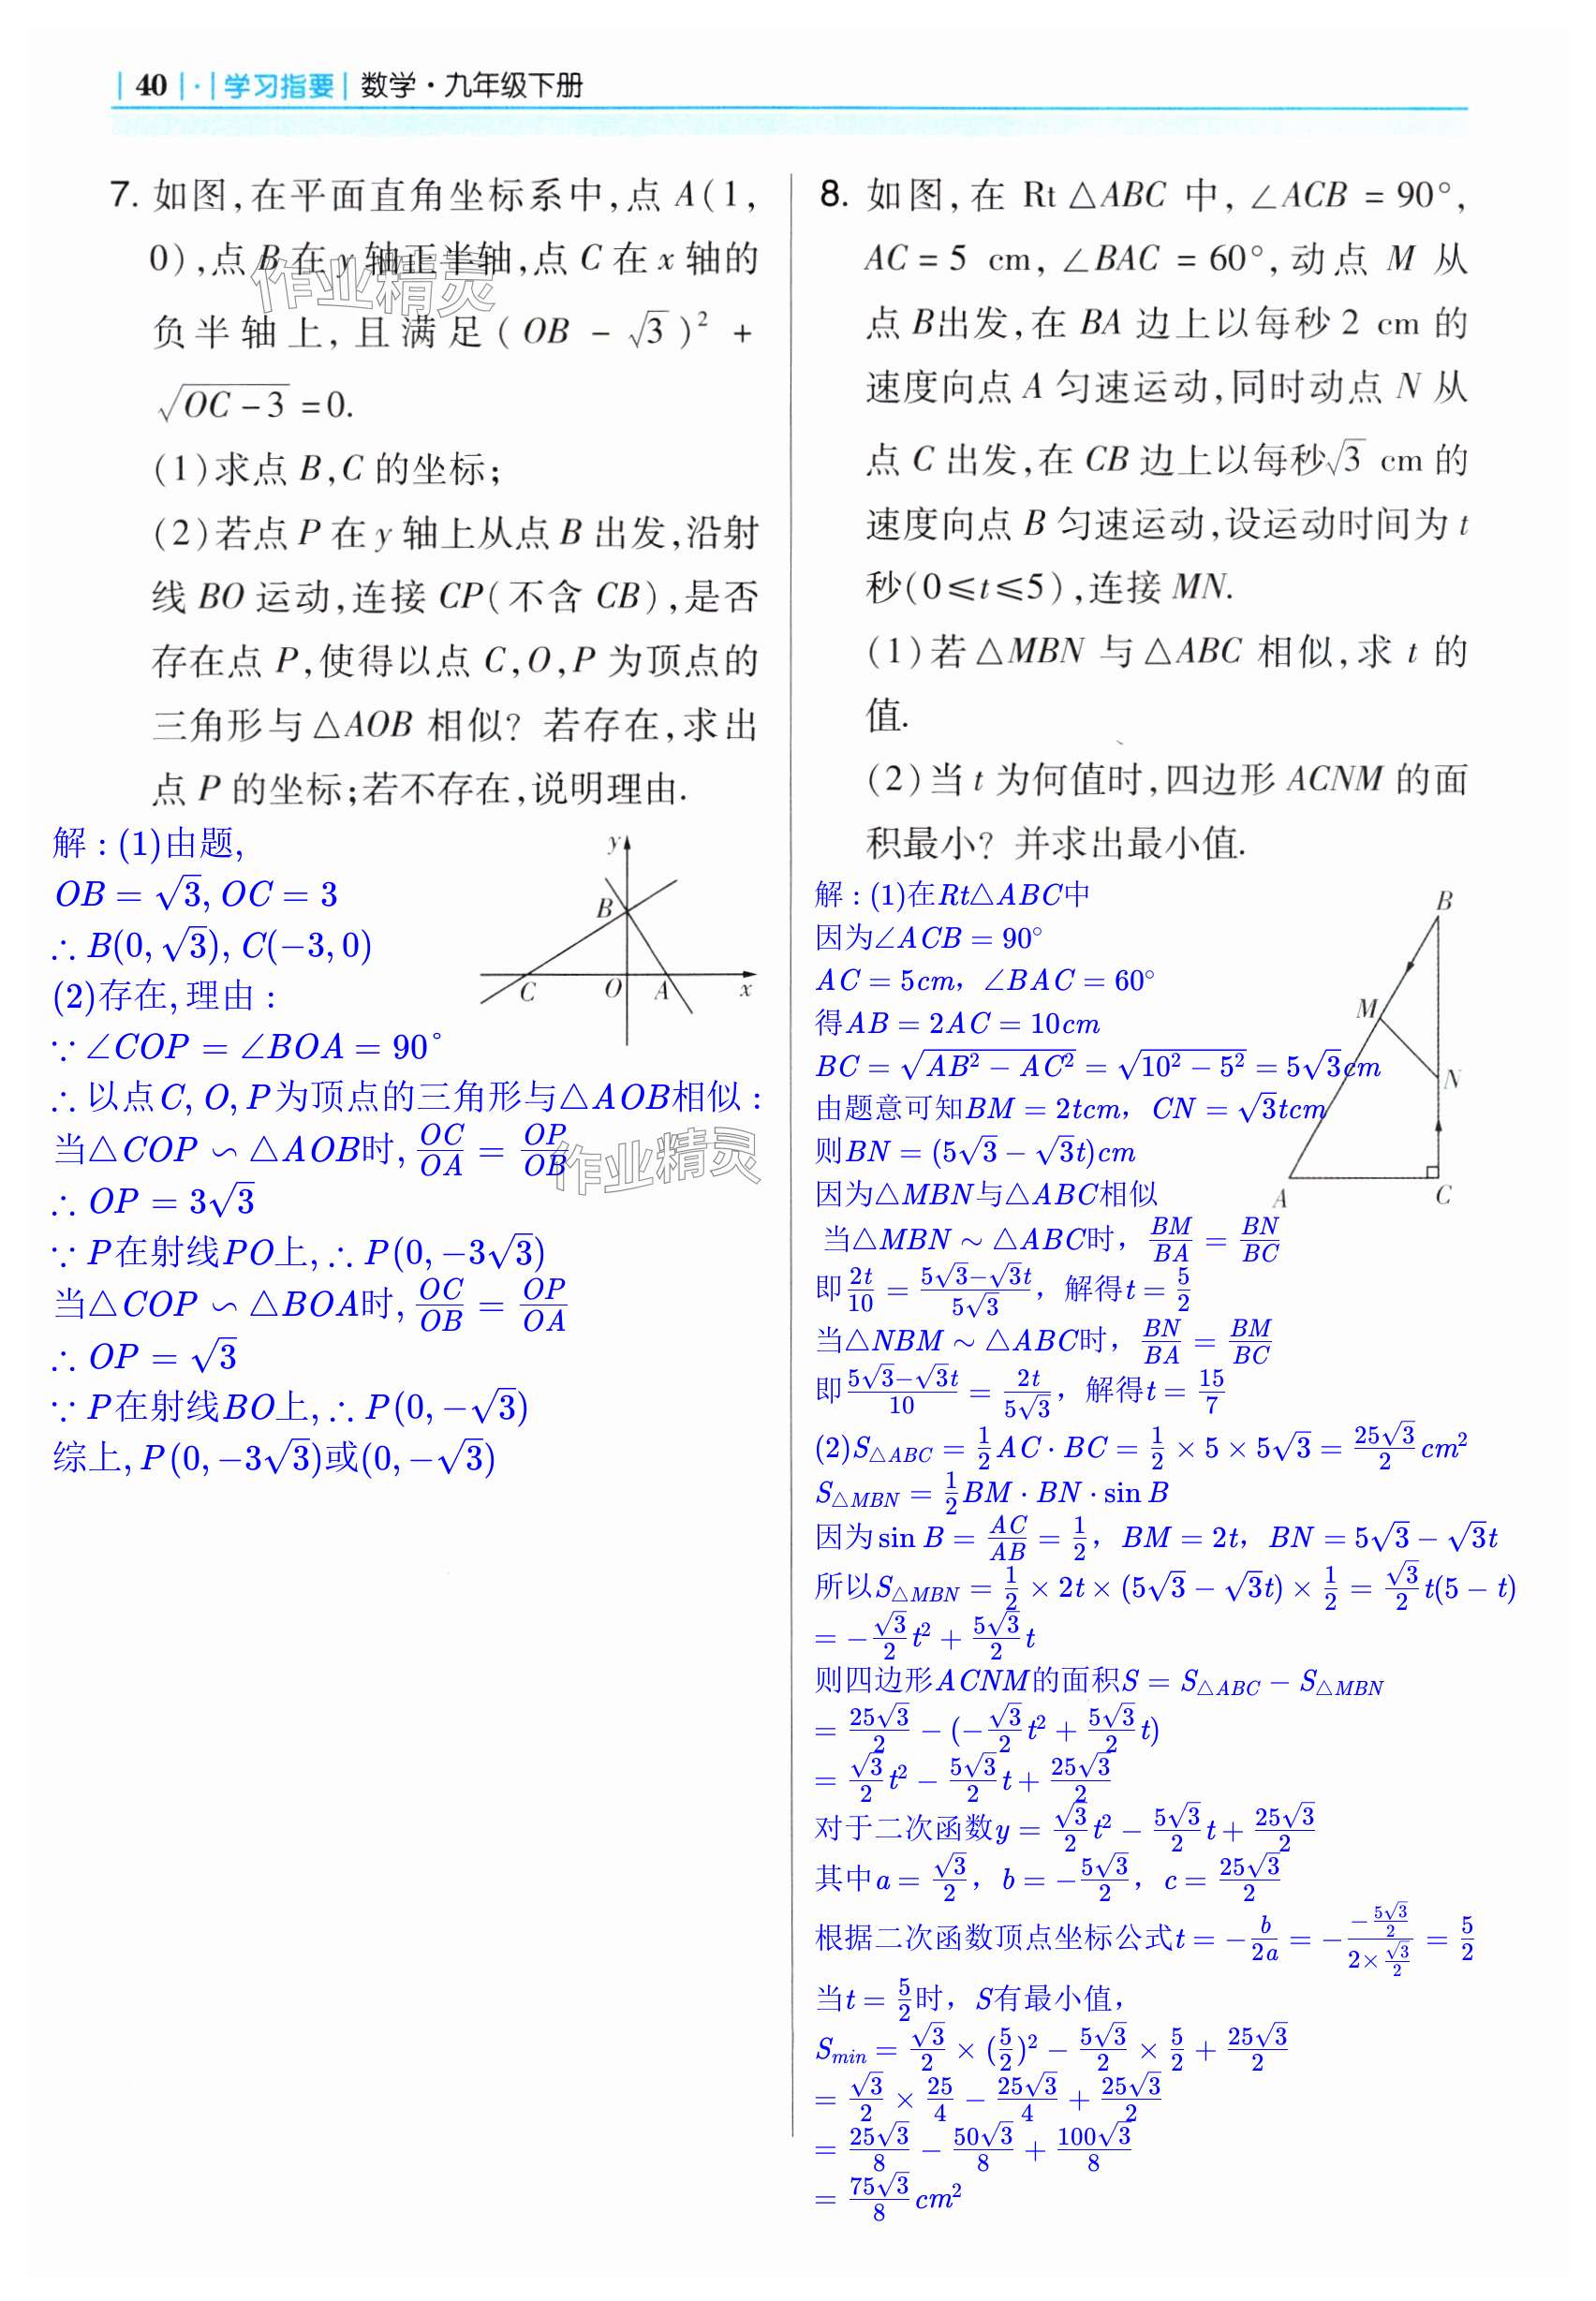 | 40 | · | 学习指要 | 数学·九年级下册
7. 如图,在平面直角坐标系中,点 A(1,
0),点 B 在 y 轴正半轴,点 C 在 x 轴的
负半轴上,且满足(OB − √3)² +
√(OC−3) =0.
(1)求点 B,C 的坐标;
(2)若点 P 在 y 轴上从点 B 出发,沿射
线 BO 运动,连接 CP(不含 CB),是否
存在点 P,使得以点 C,O,P 为顶点的
三角形与△AOB 相似? 若存在,求出
点 P 的坐标;若不存在,说明理由.
解:(1)由题,
OB = √3, OC = 3
∴ B(0, √3), C(−3, 0)
(2)存在, 理由:
∵ ∠COP = ∠BOA = 90°
∴ 以点C, O, P为顶点的三角形与△AOB相似:
当△COP ∽ △AOB时, OC/OA = OP/OB
∴ OP = 3√3
∵ P在射线PO上, ∴ P(0, −3√3)
当△COP ∽ △BOA时, OC/OB = OP/OA
∴ OP = √3
∵ P在射线BO上, ∴ P(0, −√3)
综上, P(0, −3√3)或(0, −√3)
y
B
C
O
A
x
作业精灵
作业精灵
8. 如图,在 Rt △ABC 中, ∠ACB = 90°,
AC = 5 cm, ∠BAC = 60°,动点 M 从
点 B出发,在 BA 边上以每秒 2 cm 的
速度向点 A 匀速运动,同时动点 N 从
点 C 出发,在 CB 边上以每秒√3 cm 的
速度向点 B 匀速运动,设运动时间为 t
秒(0≤t≤5),连接 MN.
(1)若△MBN 与△ABC 相似,求 t 的
值.
(2)当 t 为何值时,四边形 ACNM 的面
积最小? 并求出最小值.
解:(1)在Rt△ABC中
因为∠ACB = 90°
AC = 5cm，∠BAC = 60°
得AB = 2AC = 10cm
BC = √(AB² − AC²) = √(10² − 5²) = 5√3cm
由题意可知BM = 2tcm，CN = √3tcm
则BN = (5√3 − √3t)cm
因为△MBN与△ABC相似
当△MBN ~ △ABC时，BM/BA = BN/BC
即2t/10 = (5√3−√3t)/5√3，解得t = 5/2
当△NBM ~ △ABC时，BN/BA = BM/BC
即(5√3−√3t)/10 = 2t/5√3，解得t = 15/7
(2)S△ABC = 1/2 AC · BC = 1/2 × 5 × 5√3 = 25√3/2 cm²
S△MBN = 1/2 BM · BN · sin B
因为 sin B = AC/AB = 1/2，BM = 2t，BN = 5√3 − √3t
所以S△MBN = 1/2 × 2t × (5√3 − √3t) × 1/2 = √3/2 t(5 − t)
= −√3/2 t² + 5√3/2 t
则四边形ACNM的面积S = S△ABC − S△MBN
= 25√3/2 − (−√3/2 t² + 5√3/2 t)
= √3/2 t² − 5√3/2 t + 25√3/2
对于二次函数y = √3/2 t² − 5√3/2 t + 25√3/2
其中a = √3/2，b = −5√3/2，c = 25√3/2
根据二次函数顶点坐标公式t = −b/2a = −(−5√3/2)/(2×√3/2) = 5/2
当t = 5/2时，S有最小值，
Smin = √3/2 × (5/2)² − 5√3/2 × 5/2 + 25√3/2
= √3/2 × 25/4 − 25√3/4 + 25√3/2
= 25√3/8 − 50√3/8 + 100√3/8
= 75√3/8 cm²
B
M
N
A
C